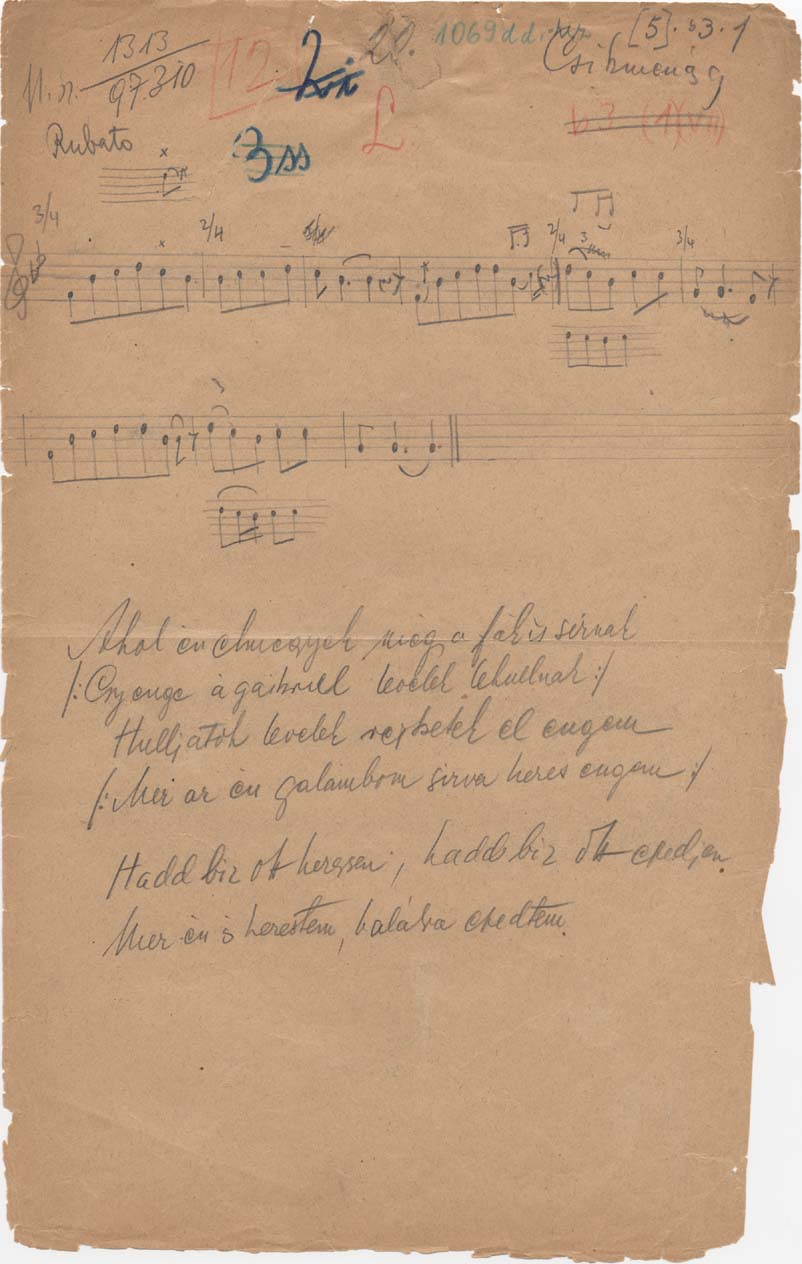 1313
M. n. 97.310
12
20.
1069dd.
[5]. b3. 1
Csikmenág
b3 (1)(VII)
Rubato
3ss
L.
3/4 2/4 2/4 3 3/4
3
Ahol én elmegyek még a fák is sirnak
/: Gyenge ágaikrull levelek lehullnak :/
Hulljatok levelek rejtsetek el engem
/: Mer az én galambom sirva keres engem :/
Hadd biz ok keressen, hadd biz ok epedjen
Mer én is kerestem, halálra epedtem.